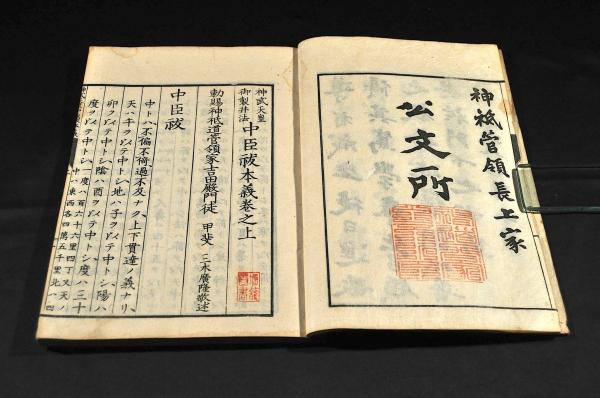 神祇管領長上家
公文所
神武天皇
御製并法
中臣祓本義卷之上
勅賜神祇道管領家吉田殿門徒 甲斐 三木廣隆敬述
中臣祓
中トハ不偏不倚過不及ナク、上下貫達ノ義ナリ、
天ハ午ヲ以テ中トシ、地ハ子ヲ以テ中トシ、陽ハ
卯ヲ以テ中トシ、陰ハ酉ヲ以テ中トシ、度ハ三十
度ヲ以テ中トシ、一度八百六十六里四丁又天ノ
中ハ東西各四萬五千里北八四